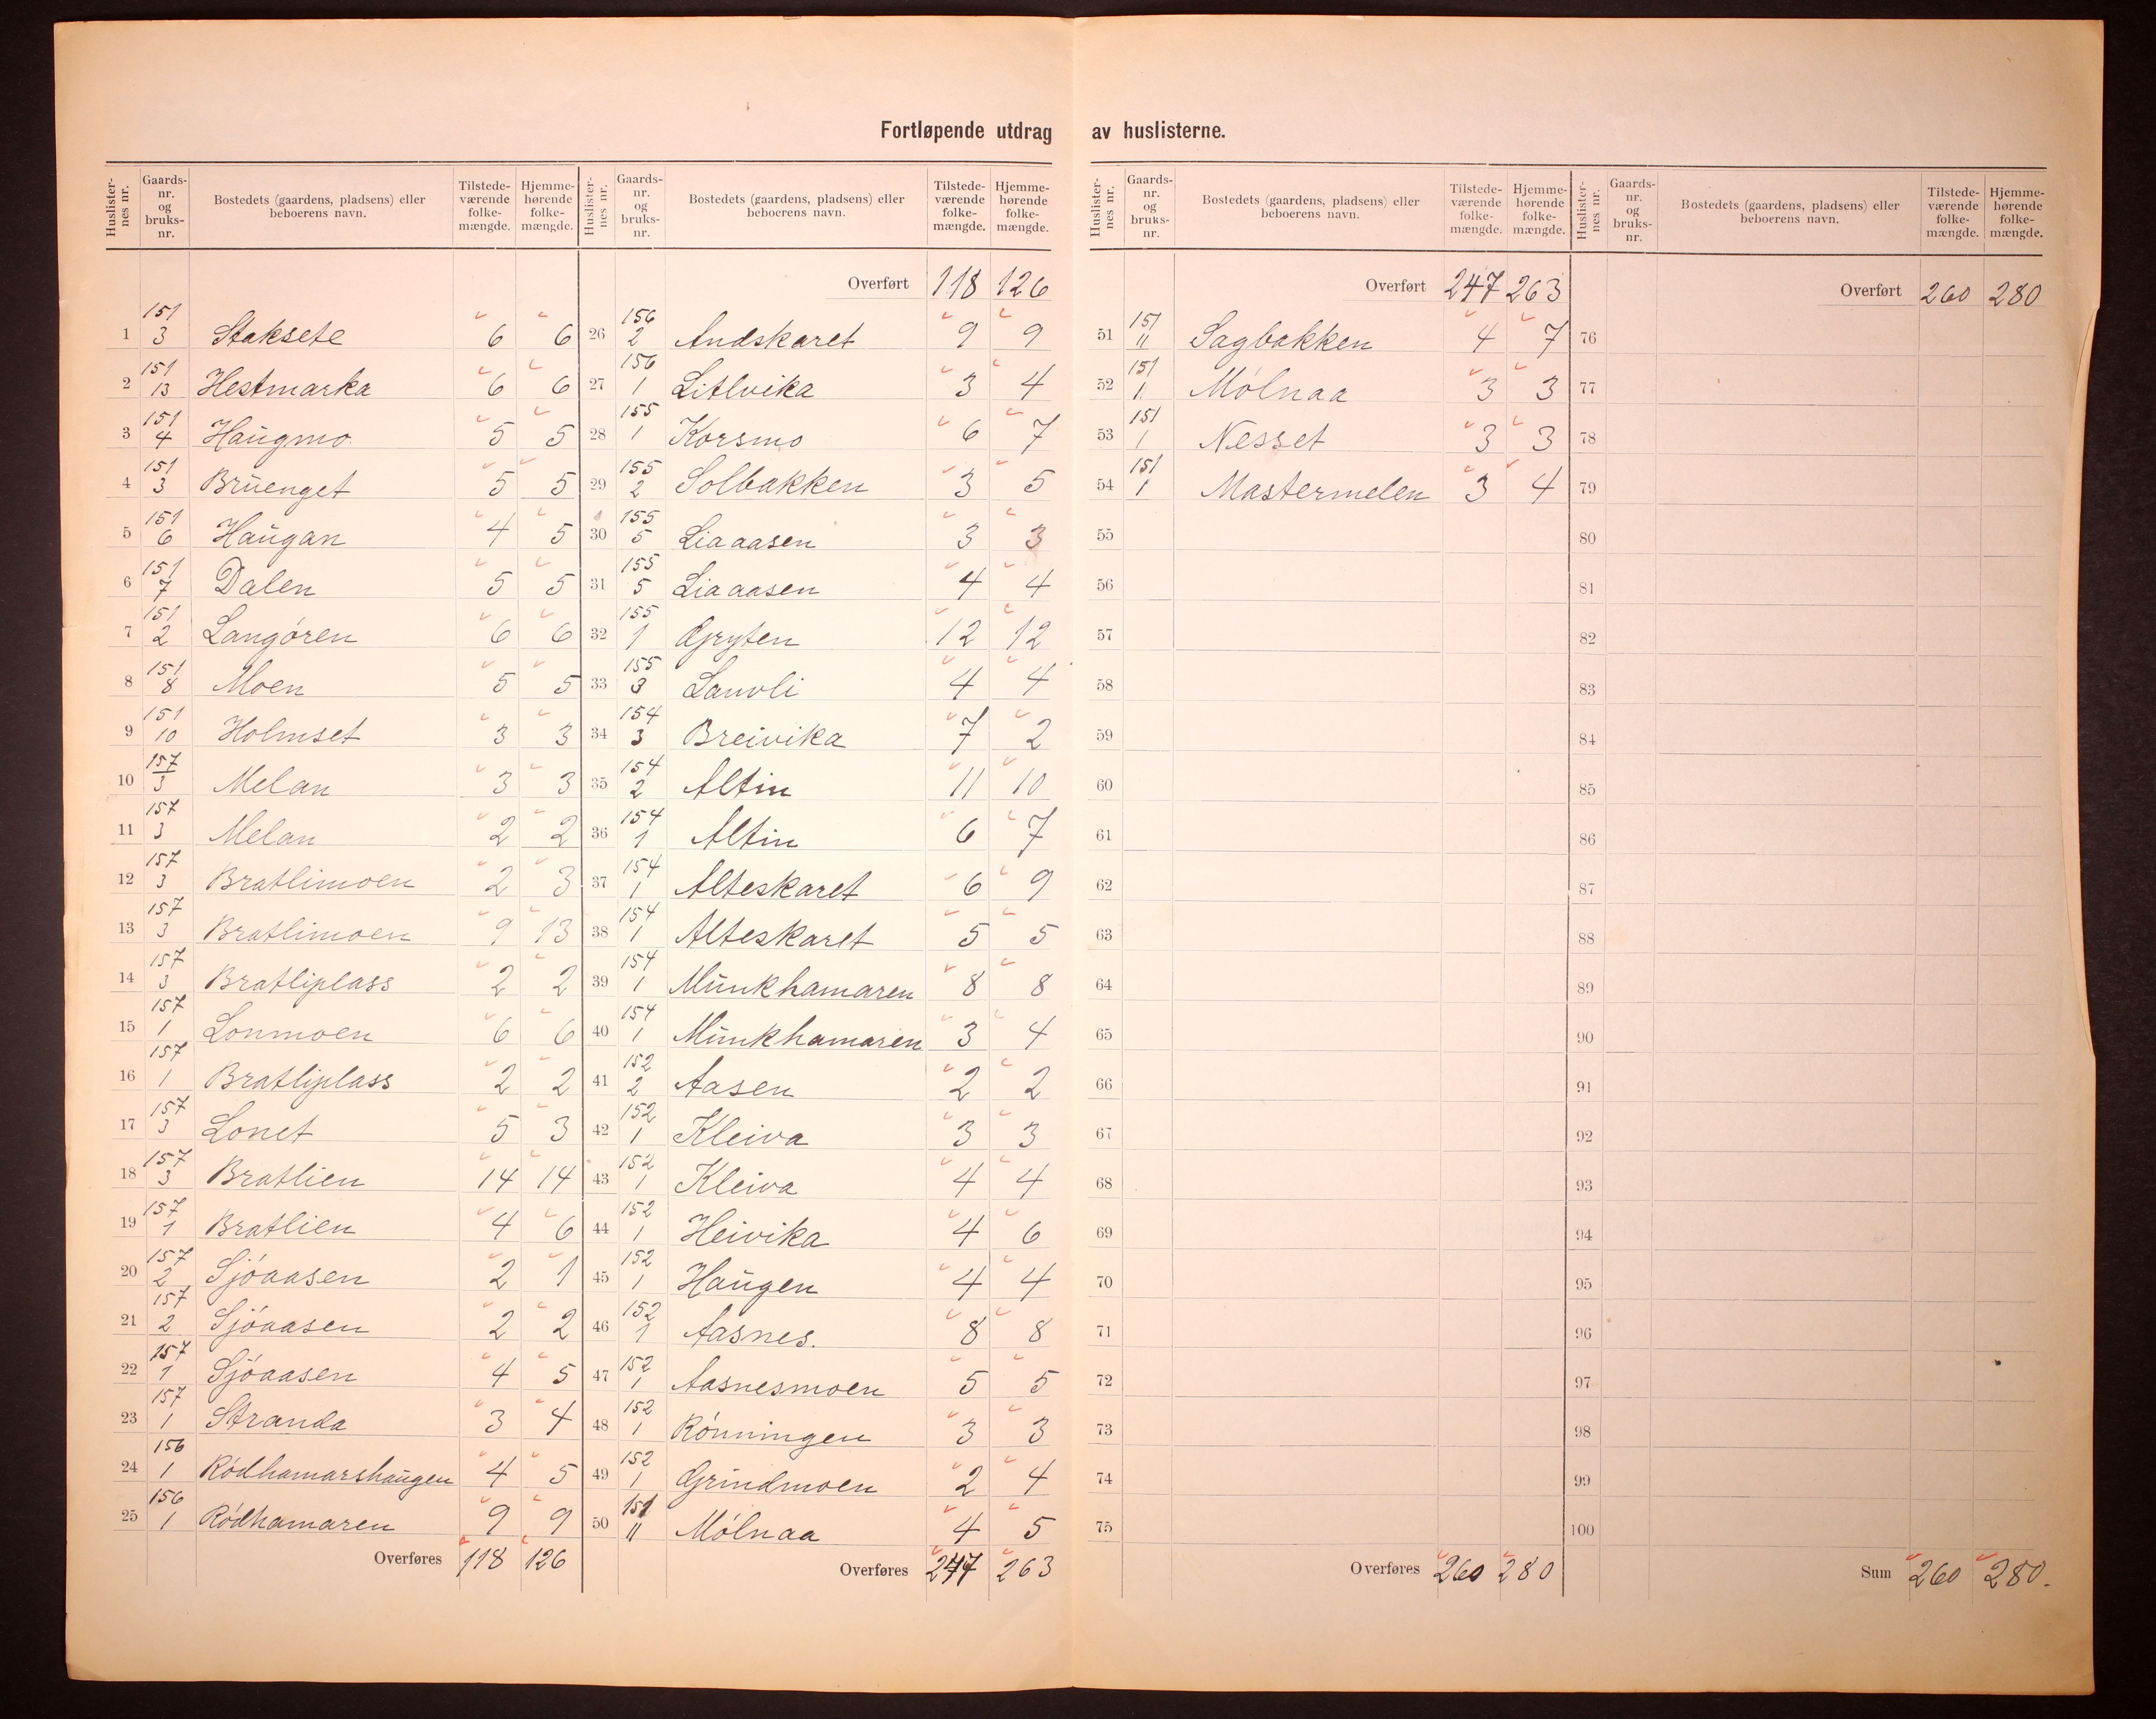 Fortløpende utdrag av huslisterne.
Huslister-nes nr. | Gaards-nr. og bruks-nr. | Bostedets (gaardens, pladsens) eller beboerens navn. | Tilstede-værende folke-mængde. | Hjemme-hørende folke-mængde.
1 151/3 Staksete 6 6
2 151/13 Hestmarka 6 6
3 151/4 Haugmo 5 5
4 151/3 Bruenget 5 5
5 151/6 Haugan 4 5
6 151/7 Dalen 5 5
7 151/2 Langóren 6 6
8 151/8 Moen 5 5
9 151/10 Holmset 3 3
10 157/3 Melan 3 3
11 157/3 Melan 2 2
12 157/3 Bratlimoen 2 3
13 157/3 Bratlimoen 9 13
14 157/3 Bratliplass 2 2
15 157/1 Lonmoen 6 6
16 157/1 Bratliplass 2 2
17 157/3 Lonet 5 3
18 157/3 Bratlien 14 14
19 157/1 Bratlien 4 6
20 157/2 Sjóaasen 2 1
21 157/2 Sjóaasen 2 2
22 157/1 Sjóaasen 4 5
23 157/1 Stranda 3 4
24 156/1 Ródhamarshaugen 4 5
25 156/1 Ródhamaren 9 9
Overføres 118 126
Huslister-nes nr. | Gaards-nr. og bruks-nr. | Bostedets (gaardens, pladsens) eller beboerens navn. | Tilstede-værende folke-mængde. | Hjemme-hørende folke-mængde.
Overført 118 126
26 156/2 Andskaret 9 9
27 156/1 Litlvika 3 4
28 155/1 Korsmo 6 7
29 155/2 Solbakken 3 5
30 155/5 Liaaasen 3 3
31 155/5 Liaaasen 4 4
32 155/1 Gryten 12 12
33 155/3 Lauvli 4 4
34 154/3 Breivika 7 2
35 154/2 Altin 11 10
36 154/1 Altin 6 7
37 154/1 Alteskaret 6 9
38 154/1 Alteskaret 5 5
39 154/1 Munkhamaren 8 8
40 154/1 Munkhamaren 3 4
41 152/2 Aasen 2 2
42 152/1 Kleiva 3 3
43 152/1 Kleiva 4 4
44 152/1 Heivika 4 6
45 152/1 Haugen 4 4
46 152/1 Aasnes. 8 8
47 152/1 Aasnesmoen 5 5
48 152/1 Rónningen 3 3
49 152/1 Grindmoen 2 4
50 151/11 Mólnaa 4 5
Overføres 247 263
Huslister-nes nr. | Gaards-nr. og bruks-nr. | Bostedets (gaardens, pladsens) eller beboerens navn. | Tilstede-værende folke-mængde. | Hjemme-hørende folke-mængde.
Overført 247 263
51 151/11 Sagbakken 4 7
52 151/1. Mólnaa 3 3
53 151/1 Nesset 3 3
54 151/1 Mastermelen 3 4
55
56
57
58
59
60
61
62
63
64
65
66
67
68
69
70
71
72
73
74
75
Overføres 260 280
Huslister-nes nr. | Gaards-nr. og bruks-nr. | Bostedets (gaardens, pladsens) eller beboerens navn. | Tilstede-værende folke-mængde. | Hjemme-hørende folke-mængde.
Overført 260 280
76
77
78
79
80
81
82
83
84
85
86
87
88
89
90
91
92
93
94
95
96
97
98
99
100
Sum 260 280.